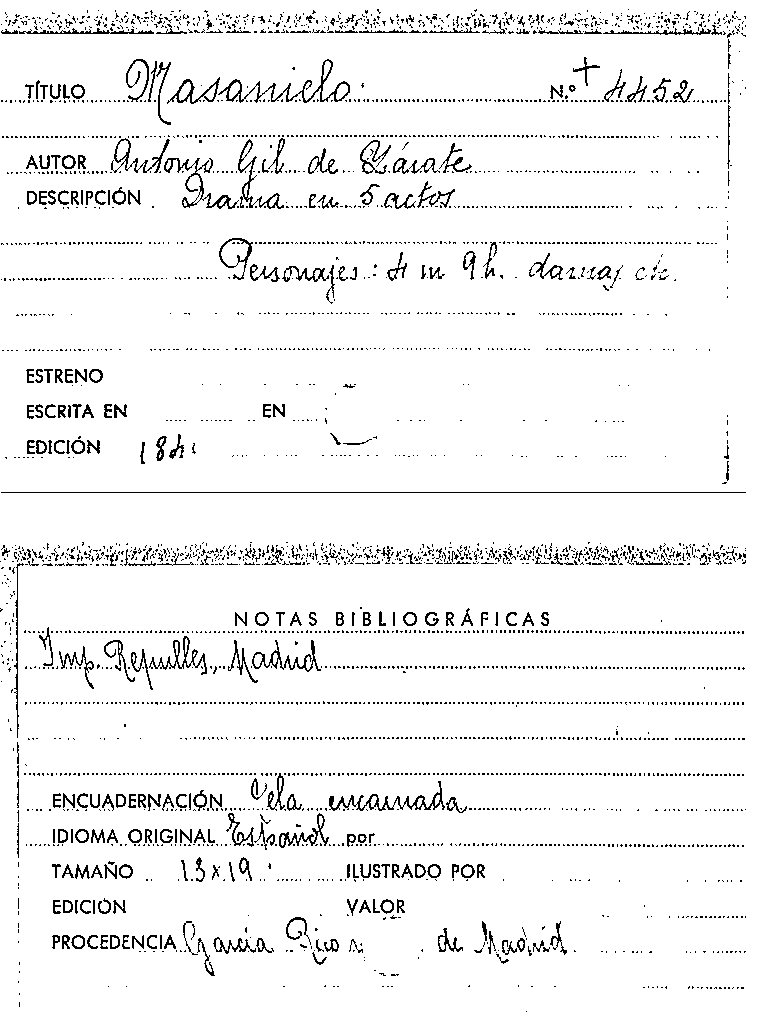 TÍTULO Masanielo. N.º + 4452
AUTOR Antonio Gil de Zárate
DESCRIPCIÓN Drama en 5 actos
Personajes: 4 m 9 h. damas etc.
ESTRENO
ESCRITA EN EN
EDICIÓN 1841
NOTAS BIBLIOGRÁFICAS
Imp. Repulles, Madrid
ENCUADERNACIÓN Tela encarnada
IDIOMA ORIGINAL Español por
TAMAÑO 13 x 19 ILUSTRADO POR
EDICIÓN VALOR
PROCEDENCIA García Rico de Madrid